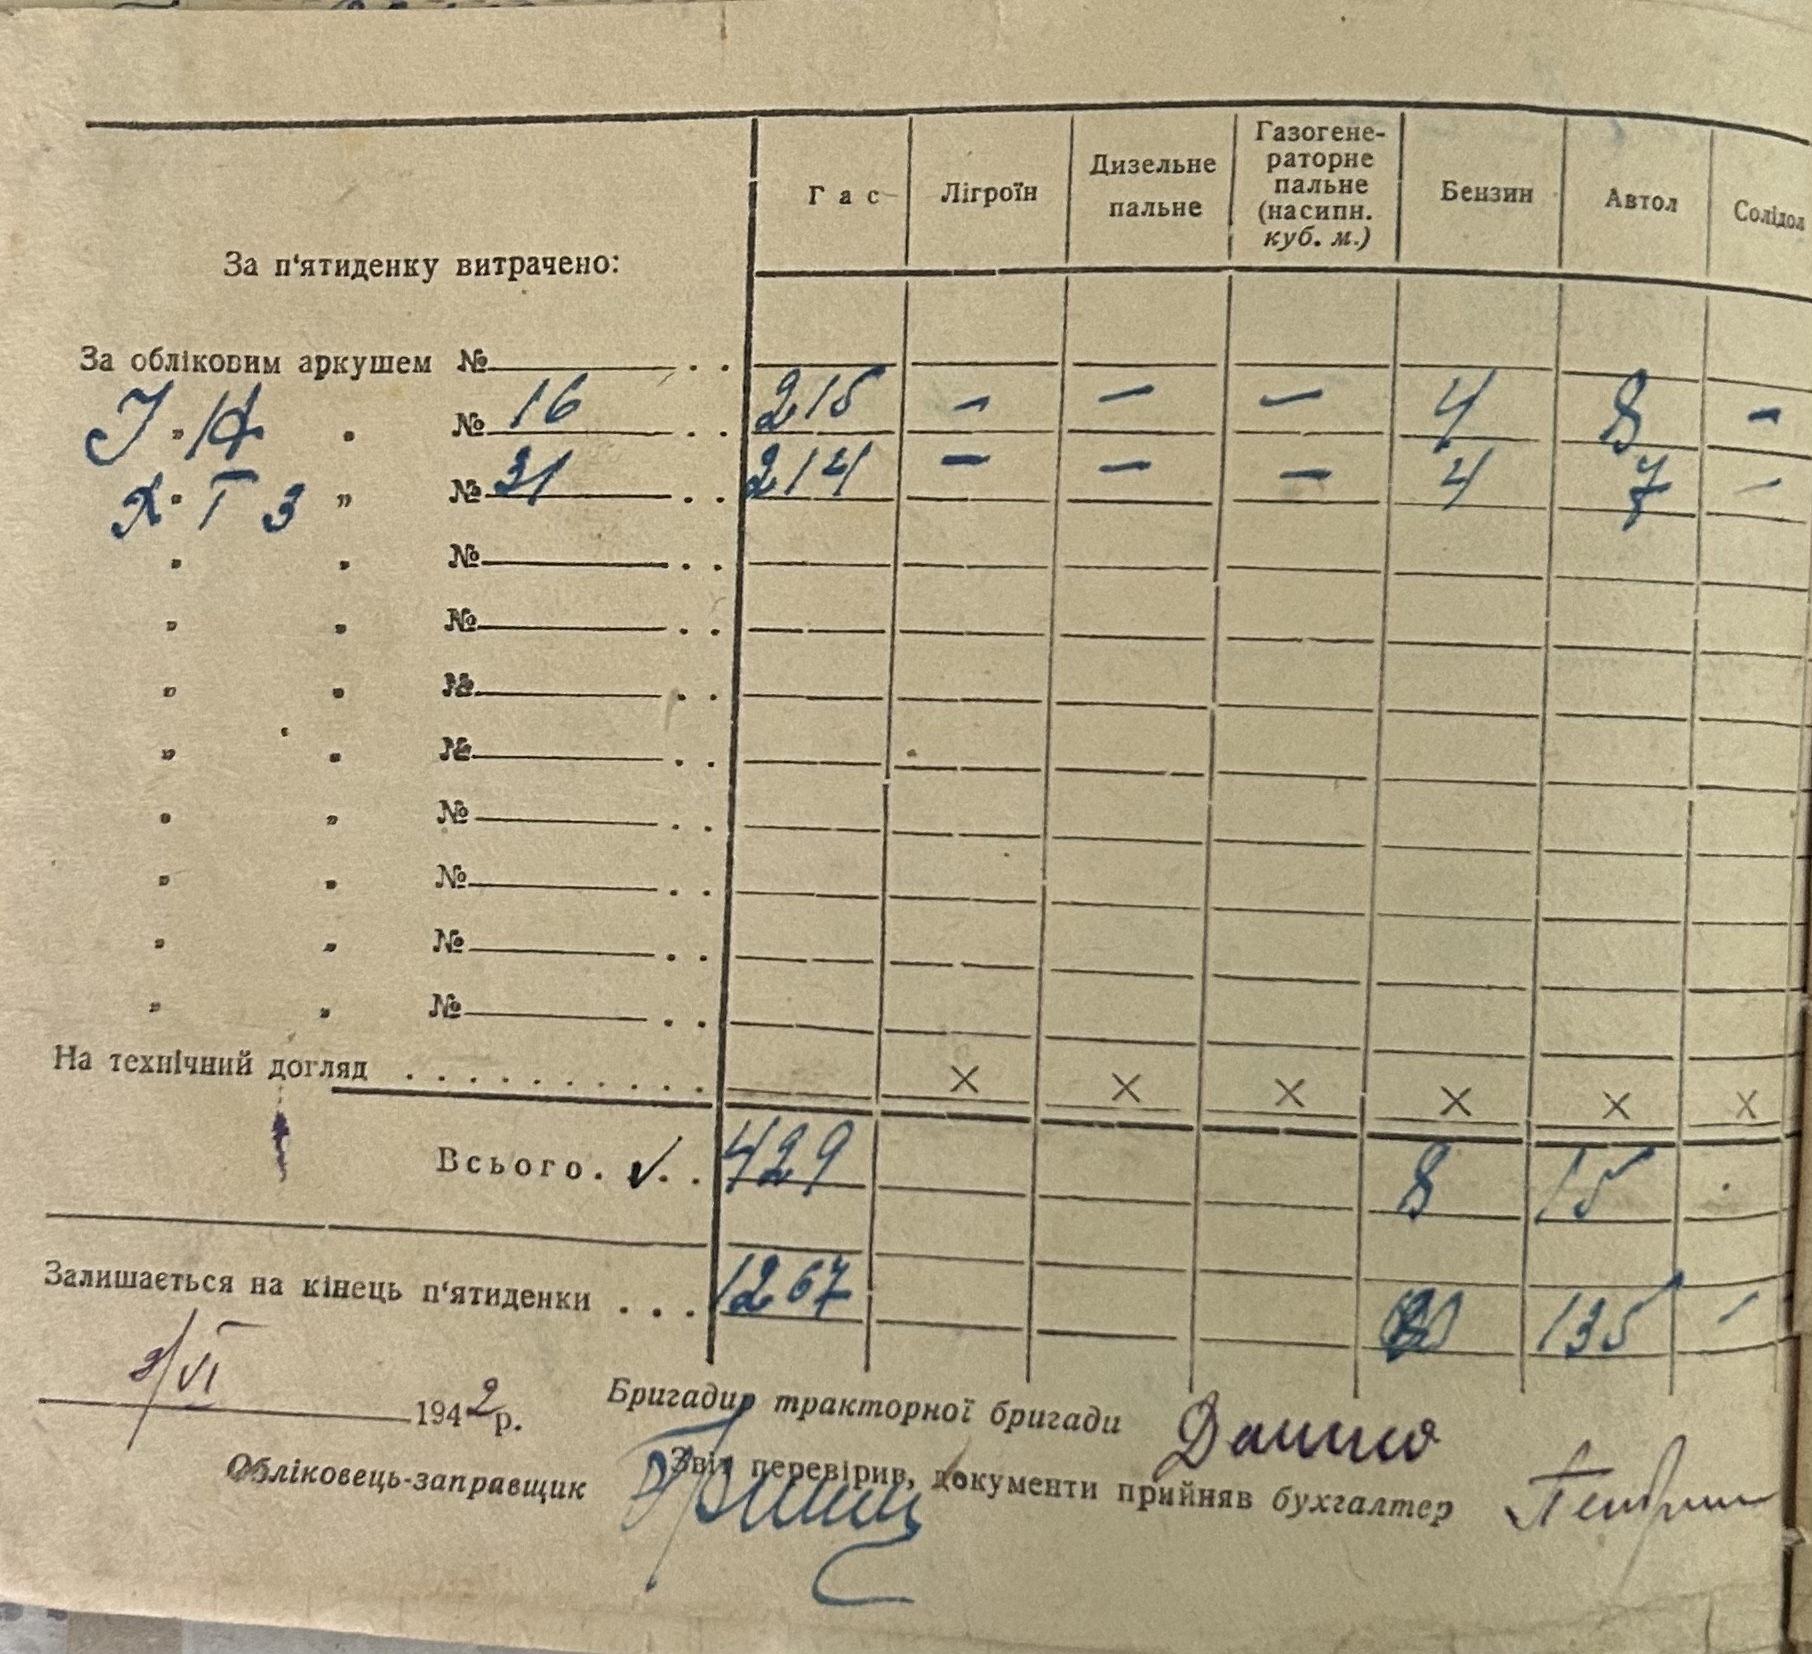 Гас Лігроїн Дизельне пальне Газогене-раторне пальне (насипн. куб. м.) Бензин Автол Солідол
За п'ятиденку витрачено:
За обліковим аркушем № . .
" " № 16 . . 215 — — — 4 8 —
Х " Т З " № 31 . . 214 — — — 4 7 —
" " № . .
" " № . .
" " № . .
" " № . .
" " № . .
" " № . .
" " № . .
" " № . .
На технічний догляд . . . . . . . . . . × × × × × ×
Всього. ✓. . 429 8 15
Залишається на кінець п'ятиденки . . . 1267 135 —
/VI 1942 р. Бригадир тракторної бригади
Обліковець-заправщик Звіт перевірив, документи прийняв бухгалтер